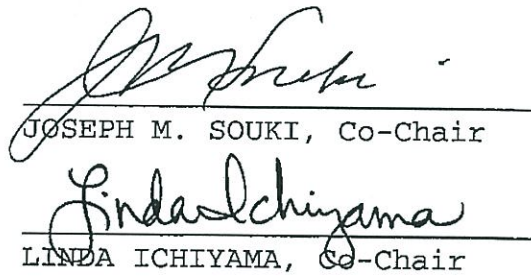 JM Souki
JOSEPH M. SOUKI, Co-Chair
Linda Ichiyama
LINDA ICHIYAMA, Co-Chair